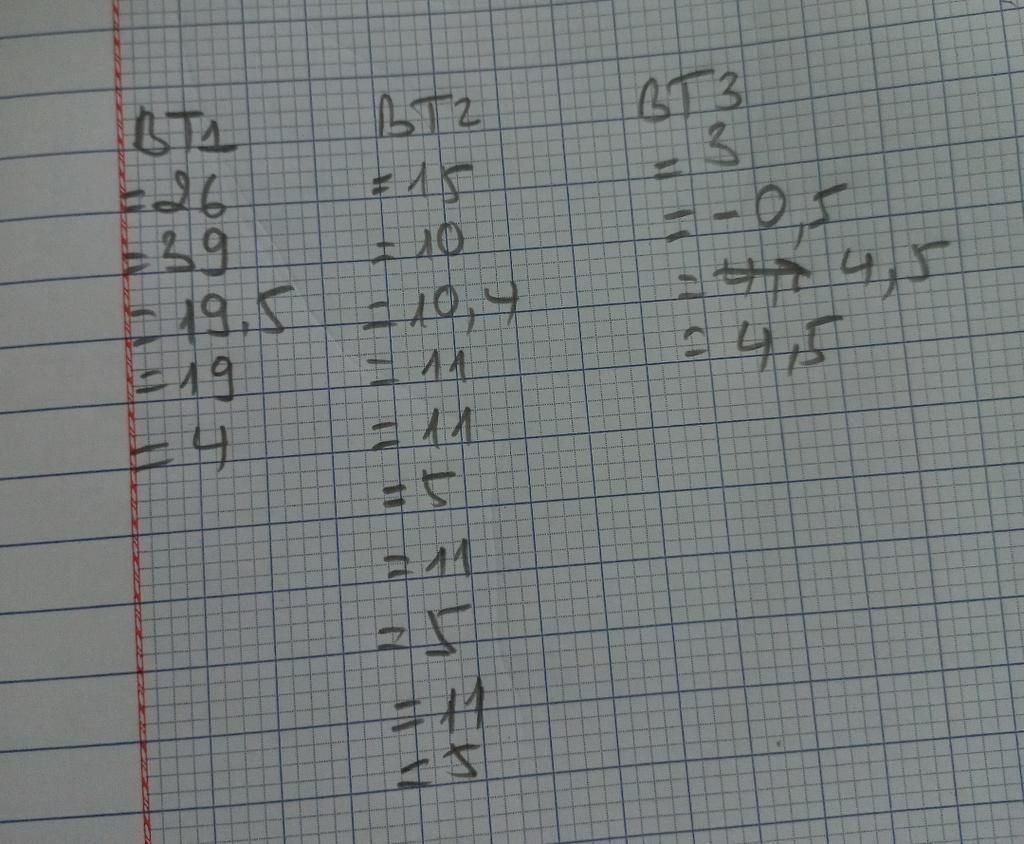 BT1
= 26
= 39
= 19,5
= 19
= 4
BT2
= 15
= 10
= 10,4
= 11
= 11
= 5
= 11
= 5
= 11
= 5
BT3
= 3
= - 0,5
= 4,5
= 4,5